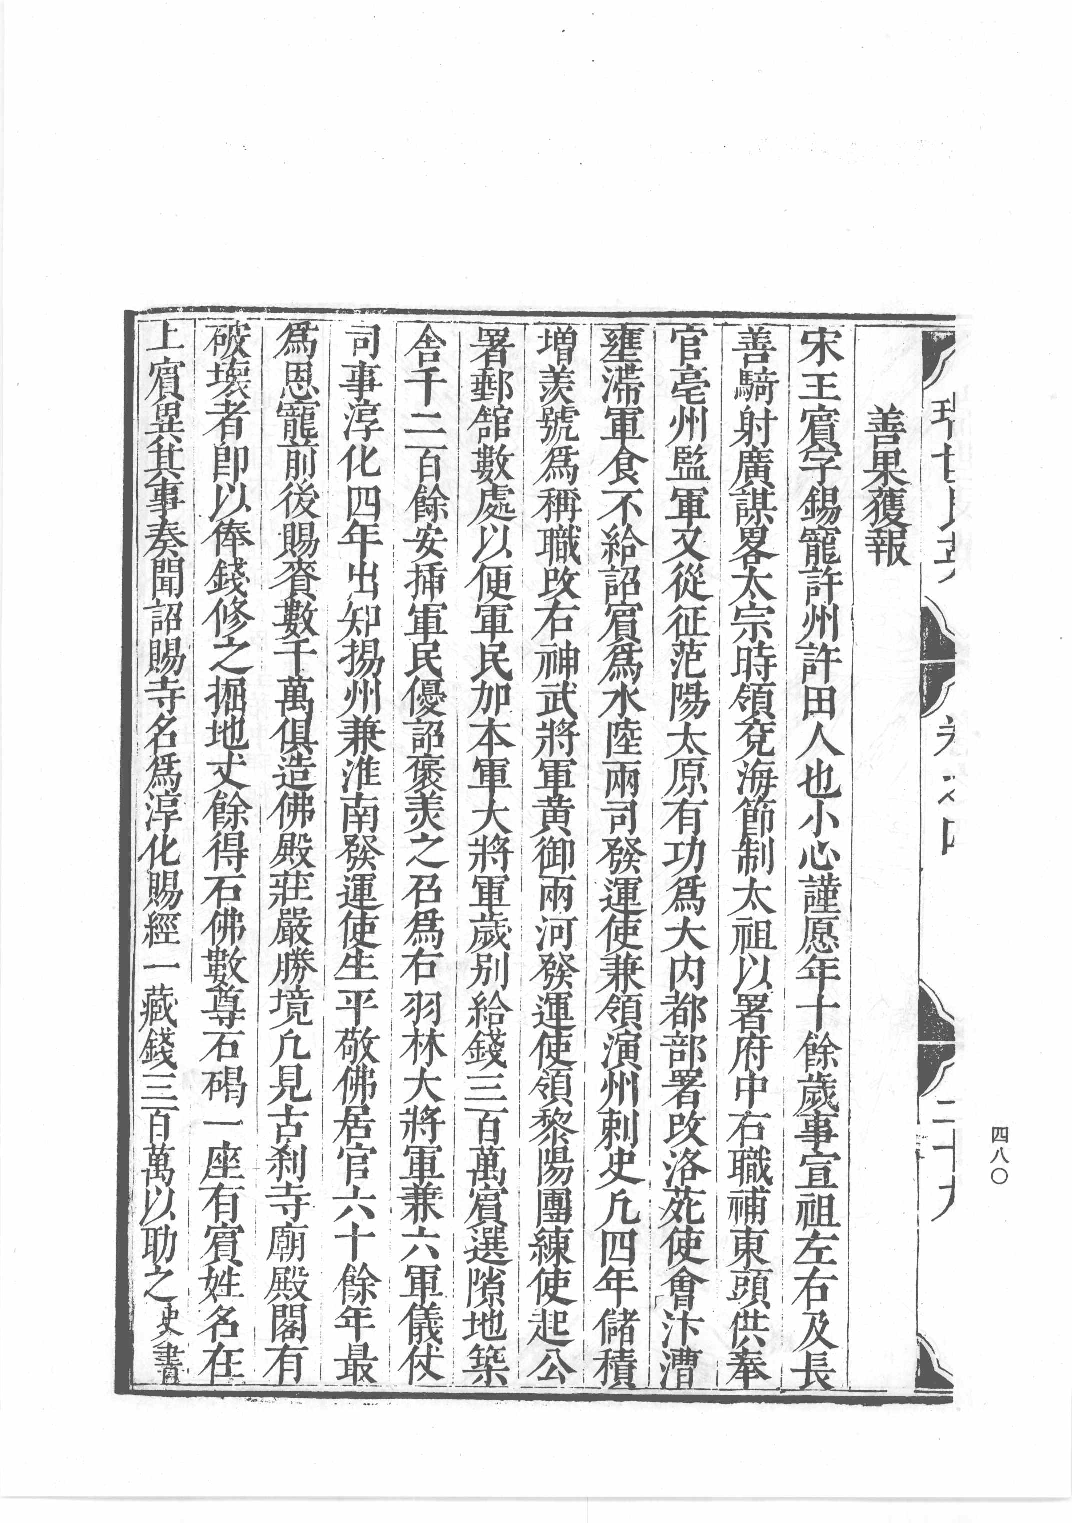 善果獲報
宋王賔字錫寵許州許田人也小心謹愿年十餘歲事宣祖左右及長
善騎射廣謀畧太宗時領兗海節制太祖以署府中右職補東頭供奉
官亳州監軍又從征范陽太原有功爲大内都部署改洛苑使會汴漕
壅滯軍食不給詔賔爲水陸兩司發運使兼領演州刺史凢四年儲積
增羡號爲稱職改右神武將軍黄御兩河發運使領黎陽團練使起公
署郵舘數處以便軍民加本軍大將軍歲别給錢三百萬賔選隙地築
舍千二百餘安揷軍民優詔褒美之召爲右羽林大將軍兼六軍儀仗
司事淳化四年出知揚州兼淮南發運使生平敬佛居官六十餘年最
爲恩寵前後賜賚數千萬俱造佛殿莊嚴勝境凢見古刹寺廟殿閣有
破壞者卽以俸錢修之掘地丈餘得石佛數尊石碣一座有賔姓名在
上賔異其事奏聞詔賜寺名爲淳化賜經一藏錢三百萬以助之史書
卷之四
二十九
四八〇